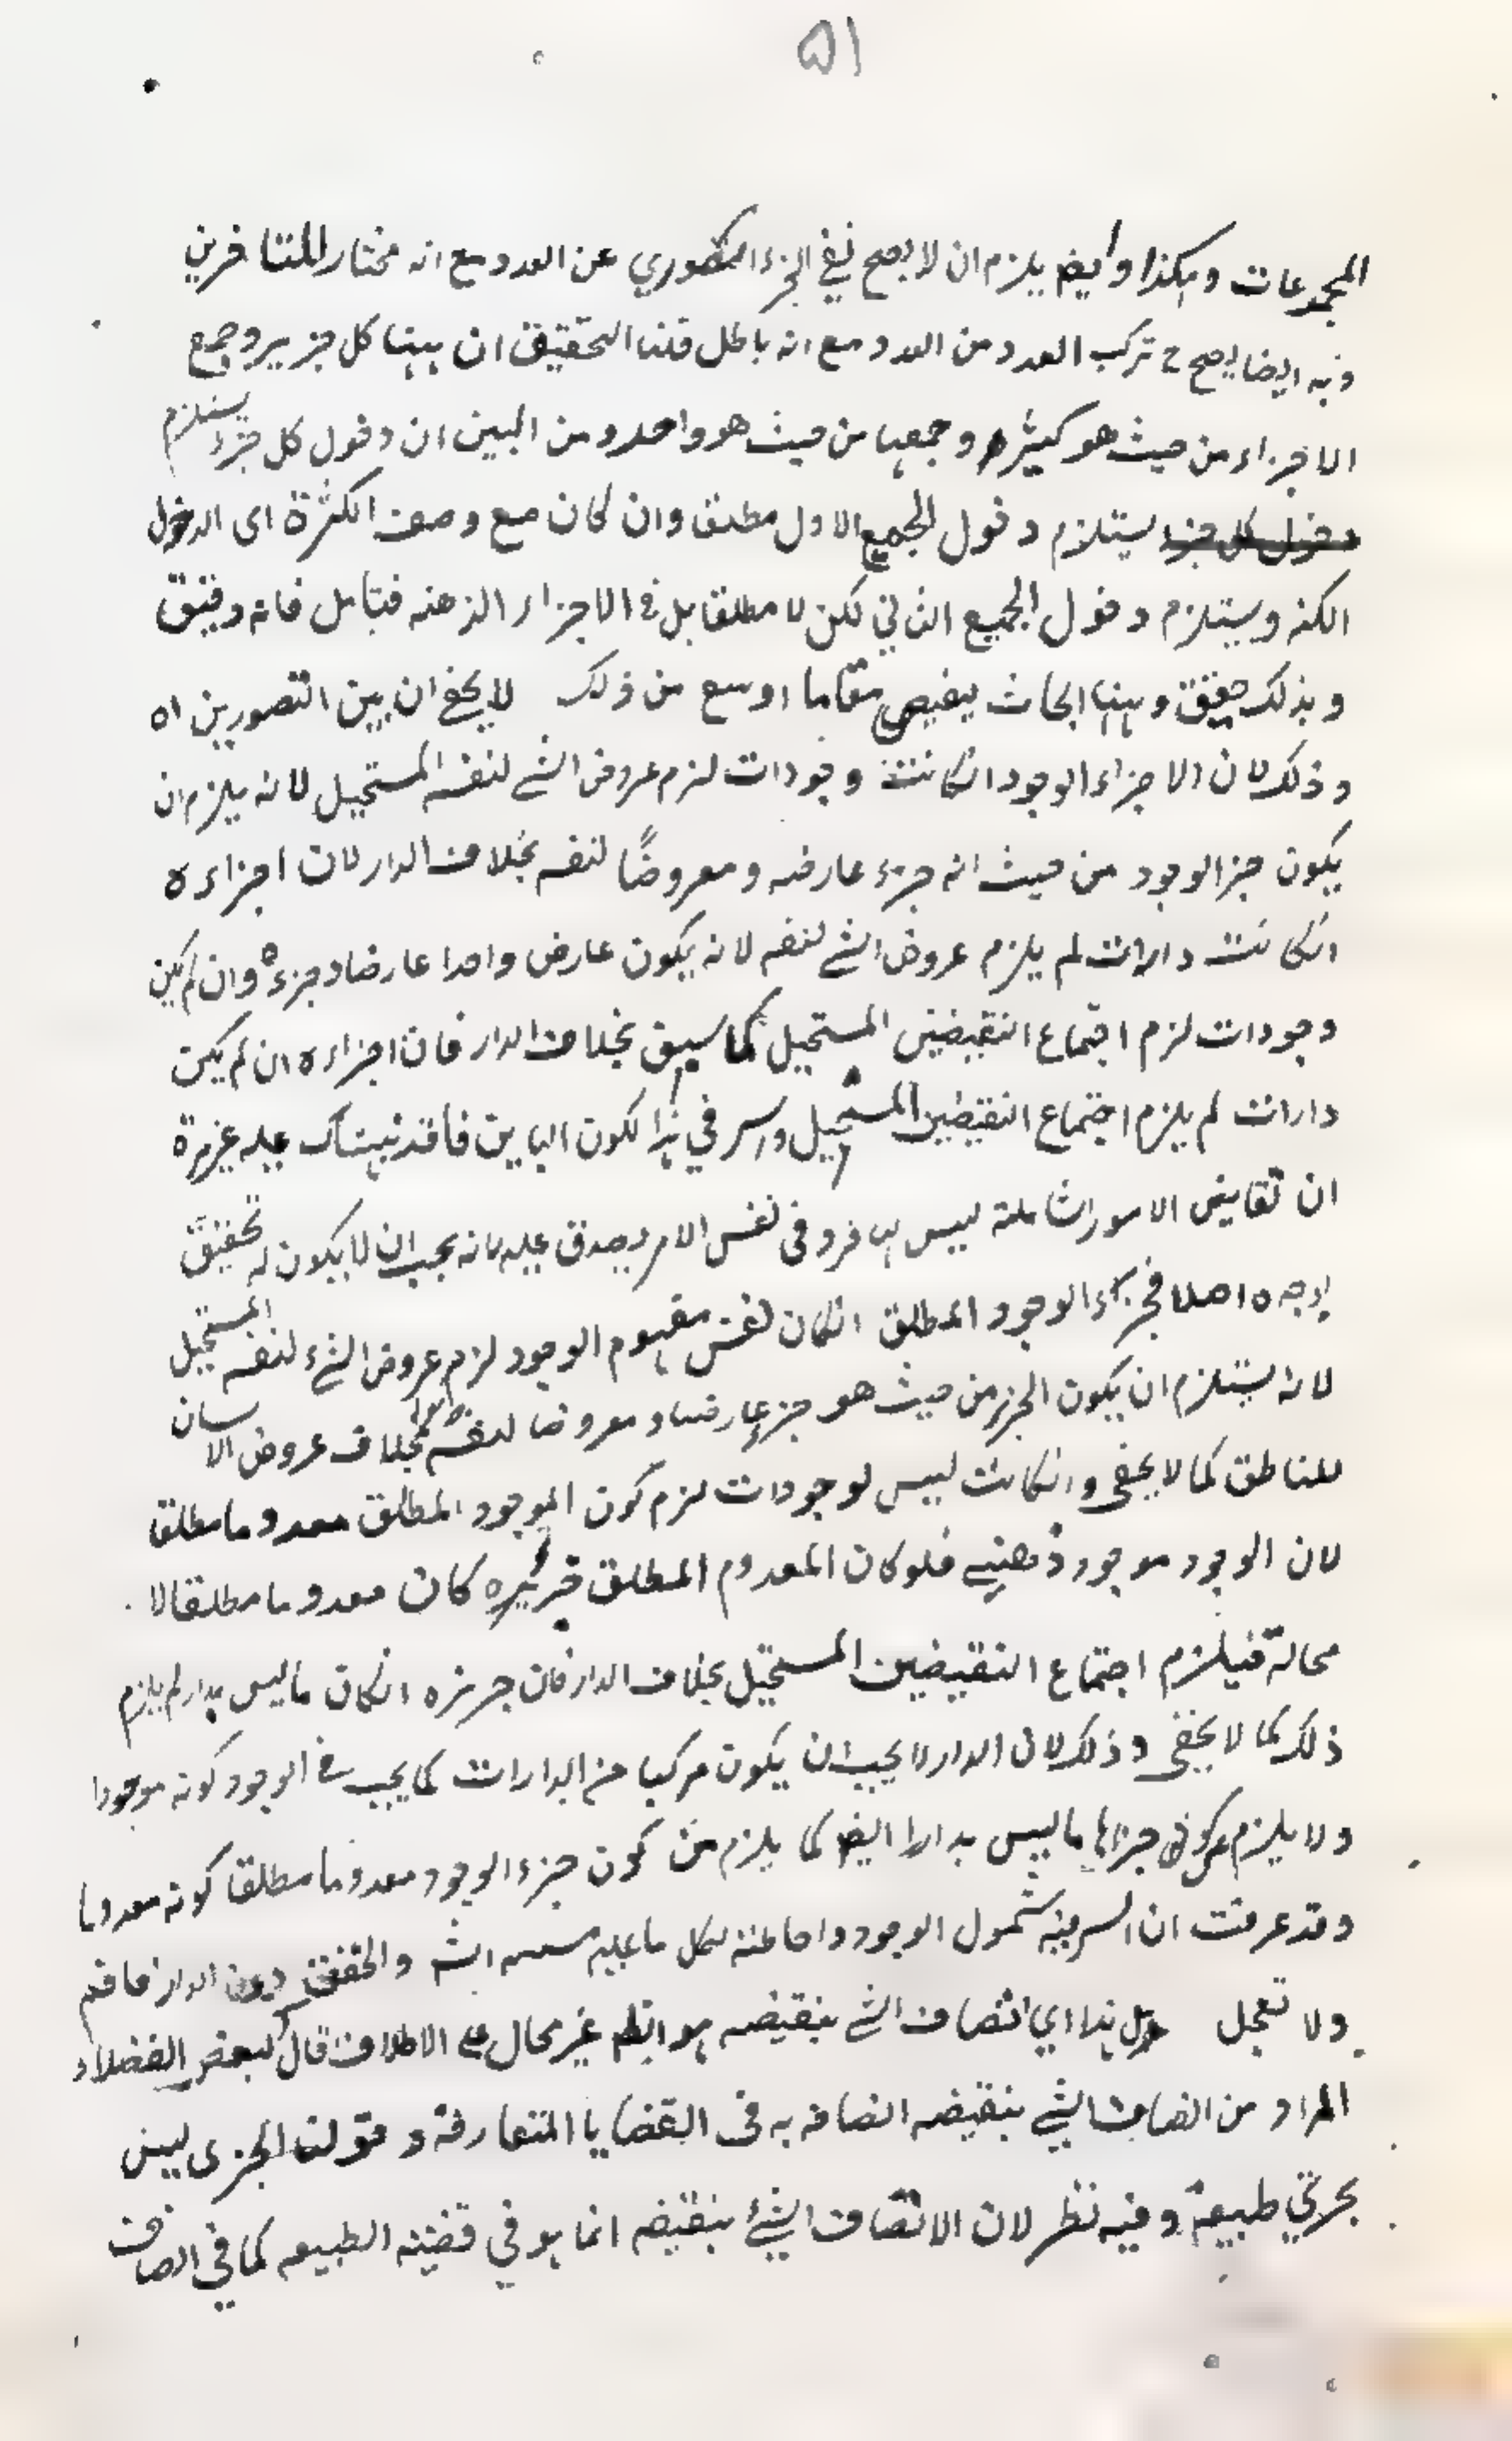 ۵۱
المجموعات وهكذا وايضا يلزم ان لا يصح نفي الجزء الصوري عن العدد مع انه مختار للمتاخرين
وبه ايضا يصح ح تركب العدد من العدد مع انه باطل قلنا التحقيق ان ههنا كل جزء جزء وجميع
الاجزاء من حيث هو كثيرة وجمعها من حيث هو واحد ومن البين ان دخول كل جزء يستلزم
يستلزم دخول الجميع الاول مطلقا وان كان مع وصف الكثرة اى الدخول
الكنه ويستلزم دخول الجميع الثاني لكن لا مطلقا بل في الاجزاء الذهنه فتامل فانه دقيق
وبذلك حقيق وههنا ابحاث يقتضي مقاما اوسع من ذلك لا يخفى ان بين التصورين اه
وذلك لان الاجزاء الوجود انكانت وجودات لزم عروض الشے لنفسه المستحيل لانه يلزم ان
يكون جزء الوجود من حيث انه جزء عارضه ومعروضًا لنفسه بخلاف الدار لان اجزاءه
انكانت دارات لم يلزم عروض الشے لنفسه لانه يكون عارض واحدا عارضا وجزءه وان لم يكن
وجودات لزم اجتماع النقيضين المستحيل كما سبق بخلاف الدار فان اجزاءه ان لم يكن
دارات لم يلزم اجتماع النقيضين المستحيل والسر في هذا لكون البابين فاقد نبهناك عليه غير مرة
ان نقايض الامور الشاملة ليس لها فرد فى نفس الامر ويصدق عليه لانه يجب ان لا يكون له تحقيق
بوجه ه اصلا فجزء الوجود المطلق انكان نفس مفهوم الوجود لزم عروض الشے لنفسه المستحيل
لانه يستلزم ان يكون الجزء من حيث هو جزء عارضا ومعروضا لنفسه بخلاف عروض الانسان
للناطق كما لا يخفى وانكانت ليس لوجودات لزم كون الموجود المطلق معدوما مطلقا
لان الوجود موجود ذهنے فلوكان المعدوم المطلق جزئيره كان معدوما مطلقا لا
محالة فيلزم اجتماع النقيضين المستحيل بخلاف الدار فان جزئره انكان ماليس بدار لم يلزم
ذلك كما لا يخفى وذلك لان الدار لا يجب ان يكون مركبا من الدارات كما يجب في الوجود كونه موجودا
ولا يلزم من كون جزاءها ماليس بدارا ايضا كما يلزم من كون جزء الوجود معدوما مطلقا كونه معدوما
وقد عرفت ان السر فيه شمول الوجود واحاطته لكل ما عليه والتحقق دون الدار فافهم
ولا تعجل هذا اي اتصاف الشے بنقيضه هو ايضا غير محال على الاطلاق قال بعض الفضلاء
المراد من اتصاف الشے بنقيضه اتصافه به فى القضايا المتعارفة وقولنا الجزى ليس
بجزئي طبيعة وفيه نظر لان الاتصاف الشئ بنقيضه انما هو في قضيته الطبيعه كما في اتصاف